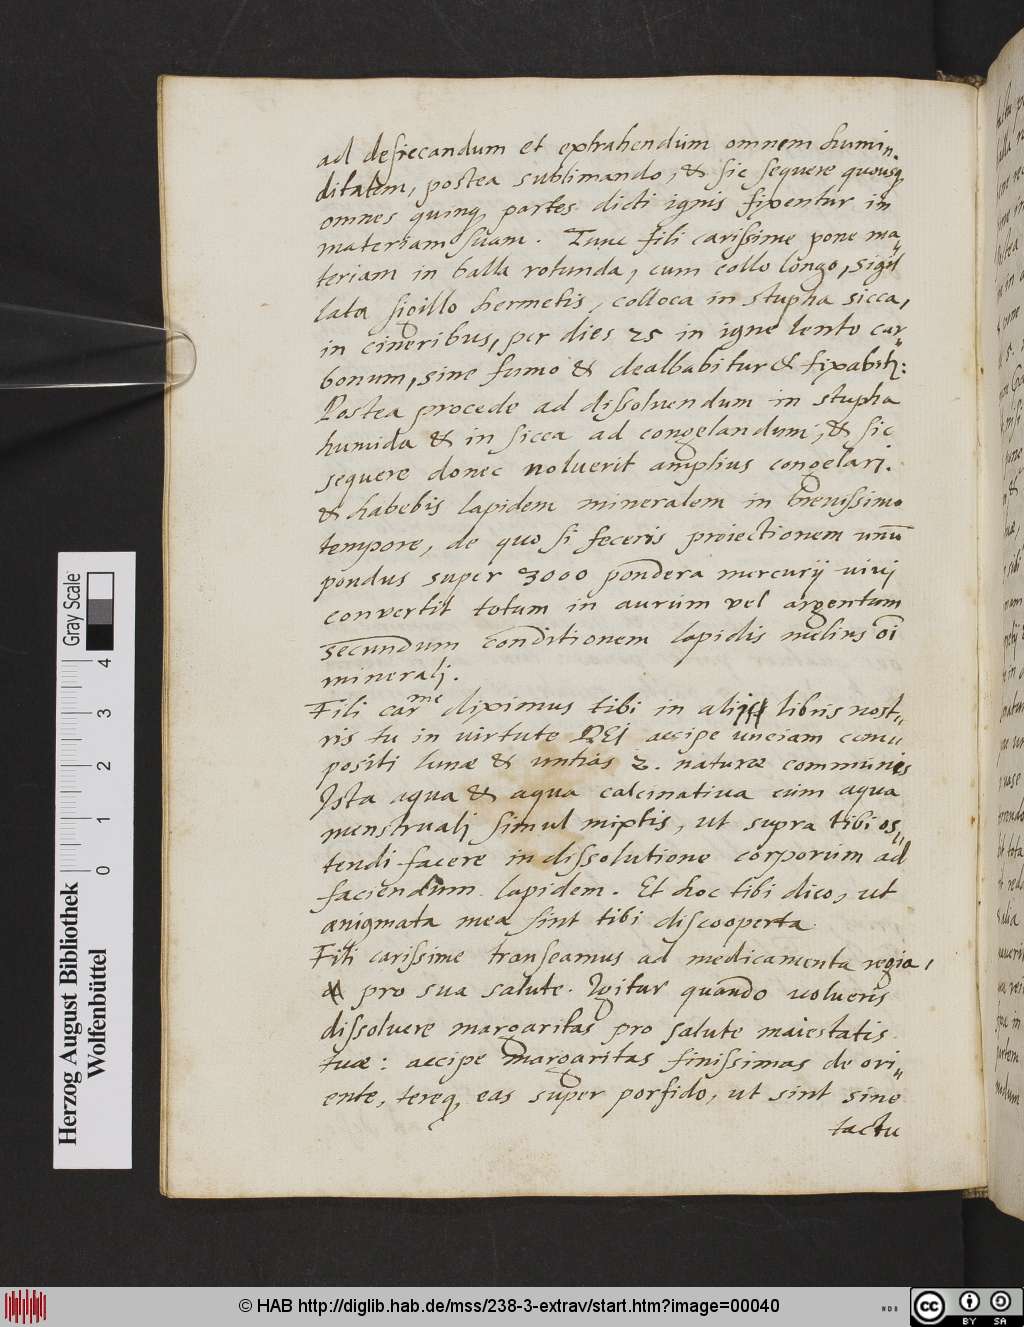 ad desiccandum et extrahendum omnem humi„
ditatem, postea sublimando, & sic sequere quousq
omnes quinq partes dicti ignis fixentur in
materiam suam. Tunc fili carissime pone ma„
teriam in balla rotunda, cum collo longo, sigil
lata sigillo hermetis, colloca in stupha sicca,
in cineribus, per dies 25 in igne lento car„
bonum, sine fumo & dealbabitur & fixabit:
Postea procede ad dissoluendum in stupha
humida & in sicca ad congelandum, & sic
sequere donec noluerit amplius congelari.
& habebis lapidem mineralem in breuissimo
tempore, de quo si feceris proiectionem unū
pondus super 3000 pondera mercurij uiui
convertit totum in aurum vel argentum
secundum conditionem lapidis melius oī
minerali.
Fili carme diximus tibi in alijs libris nost„
ris tu in virtute DEI accipe unciam com
positi lunæ & untias 2. naturæ communis
Ista aqua & aqua calcinatiua cum aqua
menstruali simul mixtis, ut supra tibi os„
tendi facere in dissolutione corporum ad
faciendum lapidem. Et hoc tibi dico, ut
ænigmata mea sint tibi discooperta
Fili carissime transeamus ad medicamenta regia,
& pro sua salute. Igitur quando uolueris
dissoluere margaritas pro salute maiestatis
tuæ: accipe margaritas finissimas de ori„
ente, tereq eas super porfido, ut sint sine
tactu
Herzog August Bibliothek
Wolfenbüttel
Gray Scale
0 1 2 3 4
© HAB http://diglib.hab.de/mss/238-3-extrav/start.htm?image=00040
cc BY SA